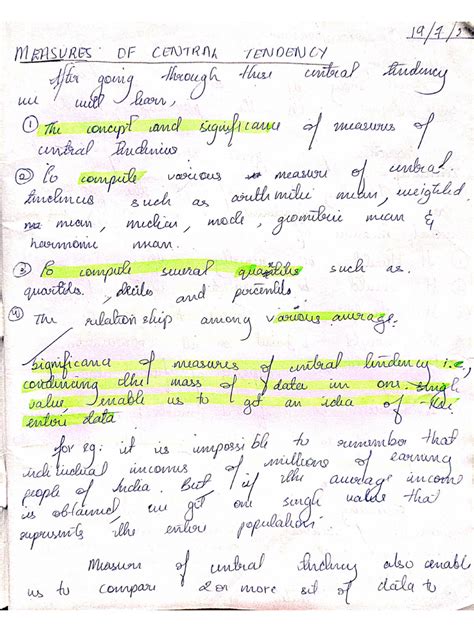 19/7/2
MEASURES OF CENTRAL TENDENCY
After going through these central tendency
we will learn,
① The concept and significance of measures of
central tendencies
② To compute various measure of central
tendencies such as arithmetic mean, weighted
mean, median, mode, geometric mean &
harmonic mean.
③ To compute several quantiles such as
quartiles, deciles and percentiles
④ The relationship among various average.
Significance of measures of central tendency i.e,
condensing the mass of data in one single
value enable us to get an idea of the
entire data
for eg: it is impossible to remember that
individual incomes of millions of earning
people of India. But if the average income
is obtained we get one single value that
represents the entire population.
Measure of central tendency also enable
us to compare 2 or more set of data to